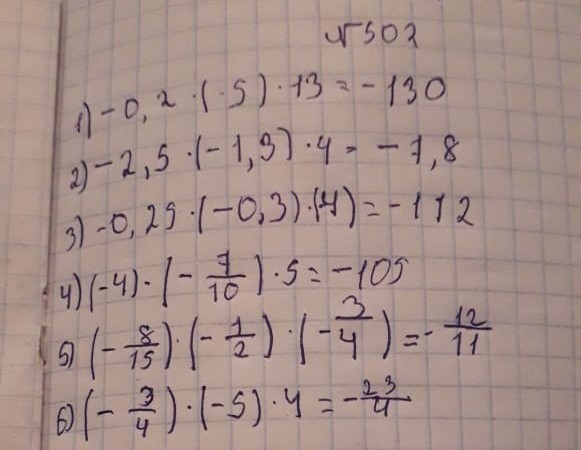 №502
1) -0,2 · (-5) · 13 = -130
2) -2,5 · (-1,3) · 4 = -7,8
3) -0,25 · (-0,3) · (4) = -112
4) (-4) · (-7/10) · 5 = -105
5) (-8/15) · (-1/2) · (-3/4) = -12/11
6) (-3/4) · (-5) · 4 = -23/4